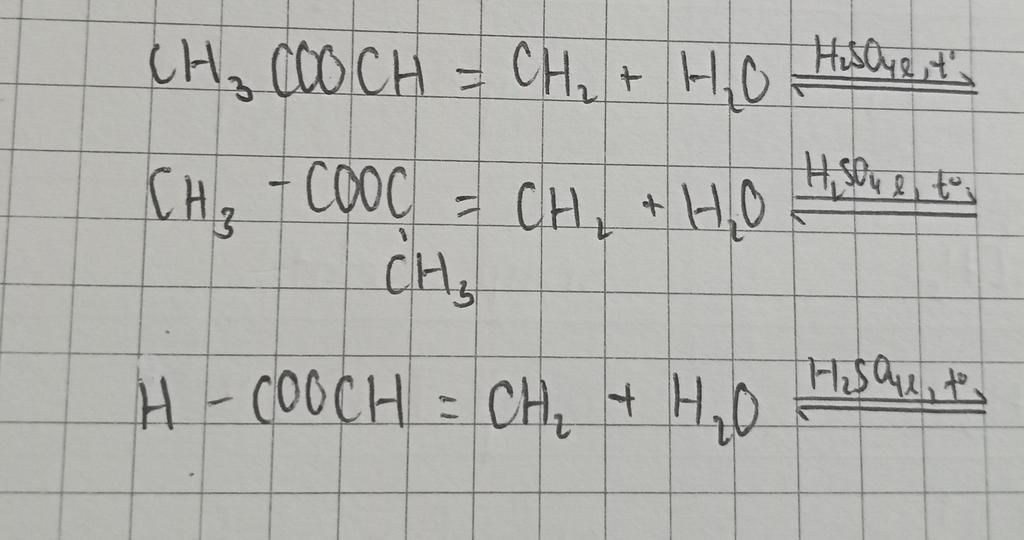 CH₃COOCH = CH₂ + H₂O ⇌ H₂SO₄ℓ, t°
CH₃ - COOC = CH₂ + H₂O ⇌ H₂SO₄ℓ, t°
CH₃
H - COOCH = CH₂ + H₂O ⇌ H₂SO₄ℓ, t°